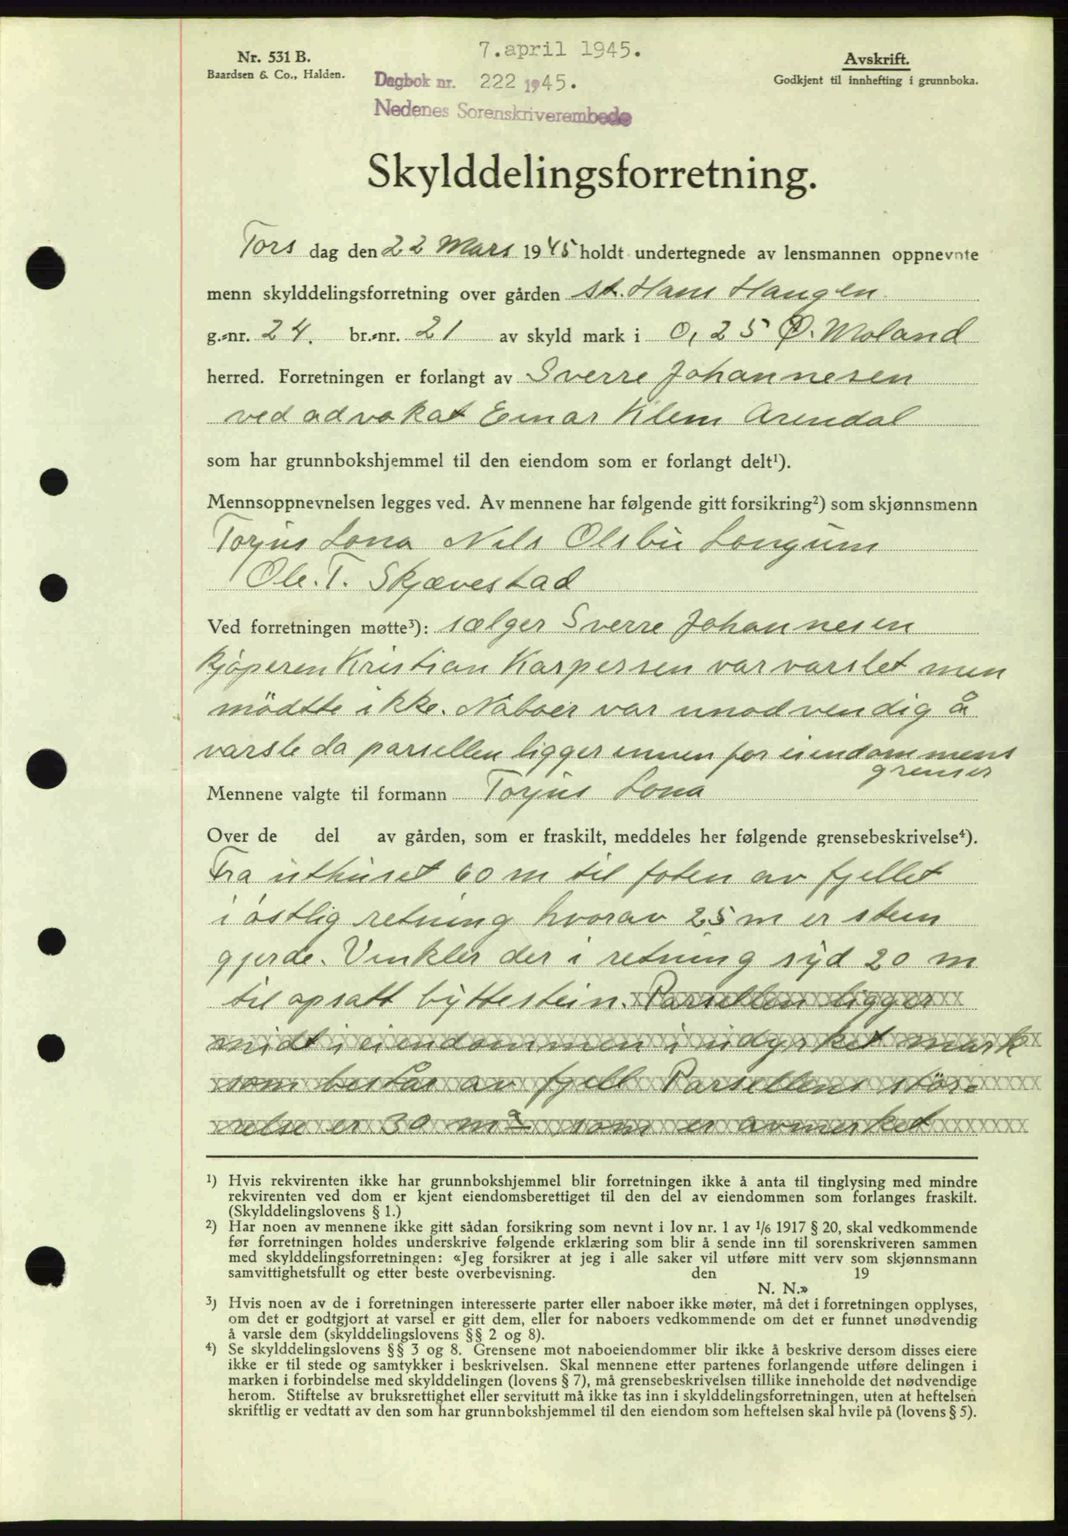 Nr. 531 B.
Baardsen & Co., Halden.
7.april 1945.
Dagbok nr. 222 1945.
Nedenes Sorenskriverembede
Avskrift.
Godkjent til innhefting i grunnboka.
Skylddelingsforretning.
Tors dag den 22 Mars 1945 holdt undertegnede av lensmannen oppnevnte
menn skylddelingsforretning over gården St. Hans Haugen
g.-nr. 24. br.-nr. 21 av skyld mark i 0,25 Ø. Moland
herred. Forretningen er forlangt av Sverre Johannesen
ved advokat Einar Klem Arendal
som har grunnbokshjemmel til den eiendom som er forlangt delt¹).
Mennsoppnevnelsen legges ved. Av mennene har følgende gitt forsikring²) som skjønnsmenn
Torjus Lona Nils Olsbu Longum
Ole. T. Skjævestad
Ved forretningen møtte³): sælger Sverre Johannesen
kjøperen Kristian Kaspersen var varslet men
mödtte ikke. Naboer var unødvendig å
varsle da parsellen ligger innen for eiendommens
grenser
Mennene valgte til formann Torjus Lona
Over de del av gården, som er fraskilt, meddeles her følgende grensebeskrivelse⁴).
Fra uthuset 60 m til foten av fjellet
i östlig retning hvorav 25 m er stein
gjerde. Vinkler der i retning syd 20 m
til opsatt byttestein. Parsellen ligger
midt i eiendommen i udyrket mark
som består av fjell Parsellens stör.
relse er 30 m² som er avmerket
¹) Hvis rekvirenten ikke har grunnbokshjemmel blir forretningen ikke å anta til tinglysing med mindre
rekvirenten ved dom er kjent eiendomsberettiget til den del av eiendommen som forlanges fraskilt.
(Skylddelingslovens § 1.)
²) Har noen av mennene ikke gitt sådan forsikring som nevnt i lov nr. 1 av 1/6 1917 § 20, skal vedkommende
før forretningen holdes underskrive følgende erklæring som blir å sende inn til sorenskriveren sammen
med skylddelingsforretningen: «Jeg forsikrer at jeg i alle saker vil utføre mitt verv som skjønnsmann
samvittighetsfullt og etter beste overbevisning. den 19
N. N.»
³) Hvis noen av de i forretningen interesserte parter eller naboer ikke møter, må det i forretningen opplyses,
om det er godtgjort at varsel er gitt dem, eller for naboers vedkommende om det er funnet unødvendig
å varsle dem (skylddelingslovens §§ 2 og 8).
⁴) Se skylddelingslovens §§ 3 og 8. Grensene mot naboeiendommer blir ikke å beskrive dersom disses eiere
ikke er til stede og samtykker i beskrivelsen. Skal mennene etter partenes forlangende utføre delingen i
marken i forbindelse med skylddelingen (lovens § 7), må grensebeskrivelsen tillike inneholde det nødvendige
herom. Stiftelse av bruksrettighet eller servitutt må ikke tas inn i skylddelingsforretningen, uten at heftelsen
skriftlig er vedtatt av den som har grunnbokshjemmel til den eiendom som heftelsen skal hvile på (lovens § 5).